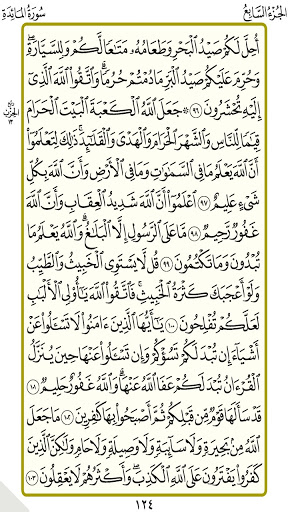 الجُزءُ السَّابِعُ
سُورَةُ المَائِدَةِ
أُحِلَّ لَكُمْ صَيْدُ ٱلْبَحْرِ وَطَعَامُهُۥ مَتَٰعًا لَّكُمْ وَلِلسَّيَّارَةِۖ
وَحُرِّمَ عَلَيْكُمْ صَيْدُ ٱلْبَرِّ مَا دُمْتُمْ حُرُمًاۗ وَٱتَّقُوا۟ ٱللَّهَ ٱلَّذِىٓ
إِلَيْهِ تُحْشَرُونَ ٩٦ ۞ جَعَلَ ٱللَّهُ ٱلْكَعْبَةَ ٱلْبَيْتَ ٱلْحَرَامَ
قِيَٰمًا لِّلنَّاسِ وَٱلشَّهْرَ ٱلْحَرَامَ وَٱلْهَدْىَ وَٱلْقَلَٰٓئِدَۚ ذَٰلِكَ لِتَعْلَمُوٓا۟
أَنَّ ٱللَّهَ يَعْلَمُ مَا فِى ٱلسَّمَٰوَٰتِ وَمَا فِى ٱلْأَرْضِ وَأَنَّ ٱللَّهَ بِكُلِّ
شَىْءٍ عَلِيمٌ ٩٧ ٱعْلَمُوٓا۟ أَنَّ ٱللَّهَ شَدِيدُ ٱلْعِقَابِ وَأَنَّ ٱللَّهَ
غَفُورٌ رَّحِيمٌ ٩٨ مَّا عَلَى ٱلرَّسُولِ إِلَّا ٱلْبَلَٰغُۗ وَٱللَّهُ يَعْلَمُ مَا
تُبْدُونَ وَمَا تَكْتُمُونَ ٩٩ قُل لَّا يَسْتَوِى ٱلْخَبِيثُ وَٱلطَّيِّبُ
وَلَوْ أَعْجَبَكَ كَثْرَةُ ٱلْخَبِيثِۚ فَٱتَّقُوا۟ ٱللَّهَ يَٰٓأُو۟لِى ٱلْأَلْبَٰبِ
لَعَلَّكُمْ تُفْلِحُونَ ١٠٠ يَٰٓأَيُّهَا ٱلَّذِينَ ءَامَنُوا۟ لَا تَسْـَٔلُوا۟ عَنْ
أَشْيَآءَ إِن تُبْدَ لَكُمْ تَسُؤْكُمْ وَإِن تَسْـَٔلُوا۟ عَنْهَا حِينَ يُنَزَّلُ
ٱلْقُرْءَانُ تُبْدَ لَكُمْ عَفَا ٱللَّهُ عَنْهَاۗ وَٱللَّهُ غَفُورٌ حَلِيمٌ ١٠١
قَدْ سَأَلَهَا قَوْمٌ مِّن قَبْلِكُمْ ثُمَّ أَصْبَحُوا۟ بِهَا كَٰفِرِينَ ١٠٢ مَا جَعَلَ
ٱللَّهُ مِنۢ بَحِيرَةٍ وَلَا سَآئِبَةٍ وَلَا وَصِيلَةٍ وَلَا حَامٍۙ وَلَٰكِنَّ ٱلَّذِينَ
كَفَرُوا۟ يَفْتَرُونَ عَلَى ٱللَّهِ ٱلْكَذِبَۖ وَأَكْثَرُهُمْ لَا يَعْقِلُونَ ١٠٣
١٢٤